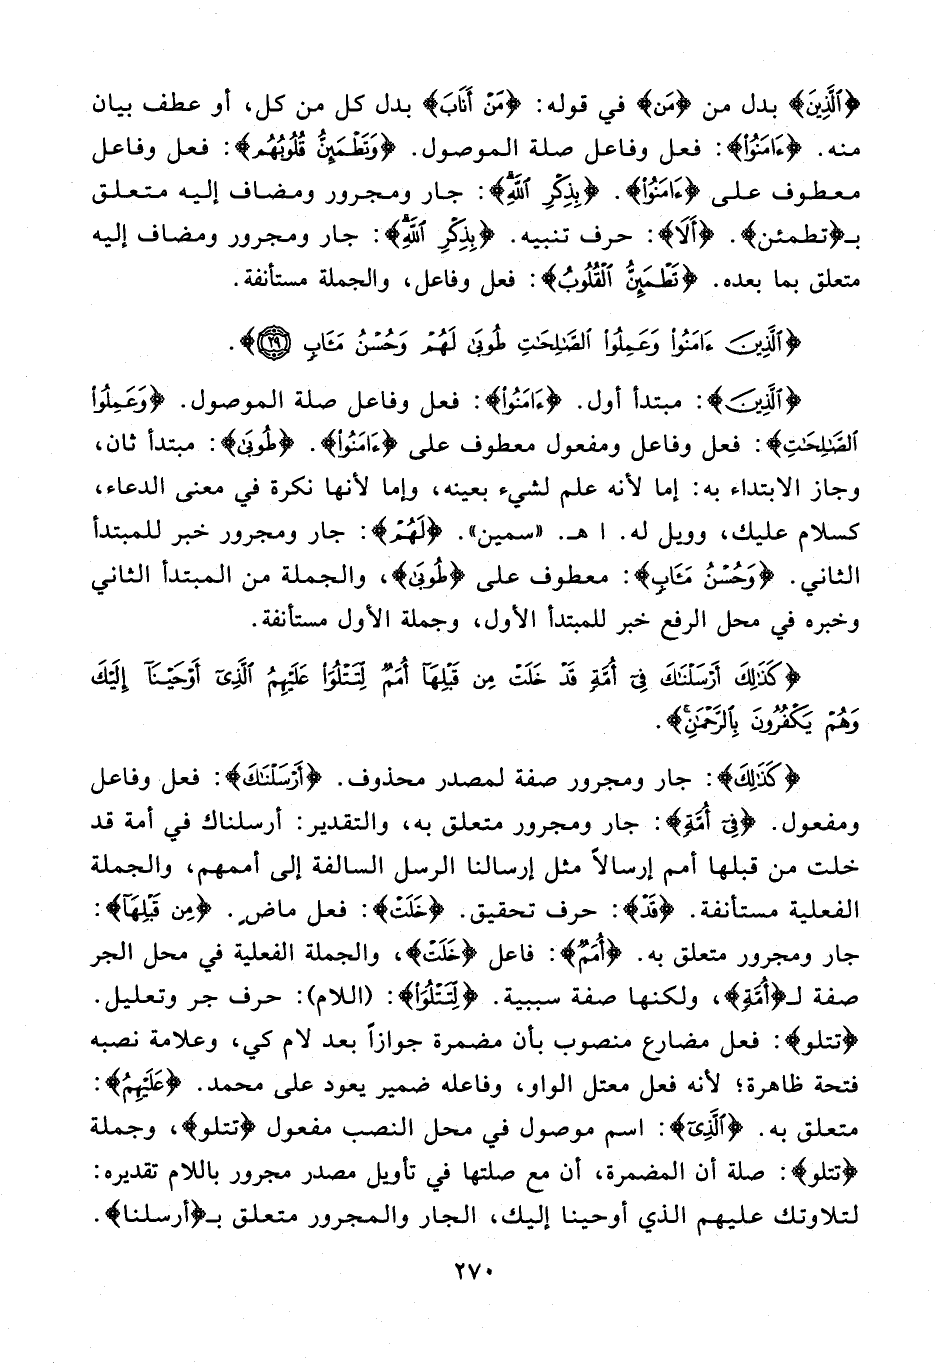 ﴿ٱلَّذِينَ﴾ بدل من ﴿مَن﴾ في قوله: ﴿مَنْ أَنَابَ﴾ بدل كل من كل، أو عطف بيان
منه. ﴿ءَامَنُوا۟﴾: فعل وفاعل صلة الموصول. ﴿وَتَطْمَئِنُّ قُلُوبُهُم﴾: فعل وفاعل
معطوف على ﴿ءَامَنُوا۟﴾. ﴿بِذِكْرِ ٱللَّهِ﴾: جار ومجرور ومضاف إليه متعلق
بـ﴿تطمئن﴾. ﴿أَلَا﴾: حرف تنبيه. ﴿بِذِكْرِ ٱللَّهِ﴾: جار ومجرور ومضاف إليه
متعلق بما بعده. ﴿تَطْمَئِنُّ ٱلْقُلُوبُ﴾: فعل وفاعل، والجملة مستأنفة.
﴿ٱلَّذِينَ ءَامَنُوا۟ وَعَمِلُوا۟ ٱلصَّـٰلِحَـٰتِ طُوبَىٰ لَهُمْ وَحُسْنُ مَـَٔابٍ ٢٩﴾.
﴿ٱلَّذِينَ﴾: مبتدأ أول. ﴿ءَامَنُوا۟﴾: فعل وفاعل صلة الموصول. ﴿وَعَمِلُوا۟
ٱلصَّـٰلِحَـٰتِ﴾: فعل وفاعل ومفعول معطوف على ﴿ءَامَنُوا۟﴾. ﴿طُوبَىٰ﴾: مبتدأ ثان،
وجاز الابتداء به: إما لأنه علم لشيء بعينه، وإما لأنها نكرة في معنى الدعاء،
كسلام عليك، وويل له. ا هـ. «سمين». ﴿لَهُمْ﴾: جار ومجرور خبر للمبتدأ
الثاني. ﴿وَحُسْنُ مَـَٔابٍ﴾: معطوف على ﴿طُوبَىٰ﴾، والجملة من المبتدأ الثاني
وخبره في محل الرفع خبر للمبتدأ الأول، وجملة الأول مستأنفة.
﴿كَذَٰلِكَ أَرْسَلْنَـٰكَ فِىٓ أُمَّةٍ قَدْ خَلَتْ مِن قَبْلِهَآ أُمَمٌ لِّتَتْلُوَا۟ عَلَيْهِمُ ٱلَّذِىٓ أَوْحَيْنَآ إِلَيْكَ
وَهُمْ يَكْفُرُونَ بِٱلرَّحْمَـٰنِ ۚ﴾.
﴿كَذَٰلِكَ﴾: جار ومجرور صفة لمصدر محذوف. ﴿أَرْسَلْنَـٰكَ﴾: فعل وفاعل
ومفعول. ﴿فِىٓ أُمَّةٍ﴾: جار ومجرور متعلق به، والتقدير: أرسلناك في أمة قد
خلت من قبلها أمم إرسالاً مثل إرسالنا الرسل السالفة إلى أممهم، والجملة
الفعلية مستأنفة. ﴿قَدْ﴾: حرف تحقيق. ﴿خَلَتْ﴾: فعل ماضٍ. ﴿مِن قَبْلِهَآ﴾:
جار ومجرور متعلق به. ﴿أُمَمٌ﴾: فاعل ﴿خَلَتْ﴾، والجملة الفعلية في محل الجر
صفة لـ﴿أُمَّةٍ﴾، ولكنها صفة سببية. ﴿لِّتَتْلُوَا۟﴾: (اللام): حرف جر وتعليل.
﴿تتلو﴾: فعل مضارع منصوب بأن مضمرة جوازاً بعد لام كي، وعلامة نصبه
فتحة ظاهرة؛ لأنه فعل معتل الواو، وفاعله ضمير يعود على محمد. ﴿عَلَيْهِمُ﴾:
متعلق به. ﴿ٱلَّذِىٓ﴾: اسم موصول في محل النصب مفعول ﴿تتلو﴾، وجملة
﴿تتلو﴾: صلة أن المضمرة، أن مع صلتها في تأويل مصدر مجرور باللام تقديره:
لتلاوتك عليهم الذي أوحينا إليك، الجار والمجرور متعلق بـ﴿أرسلنا﴾.
٢٧٠